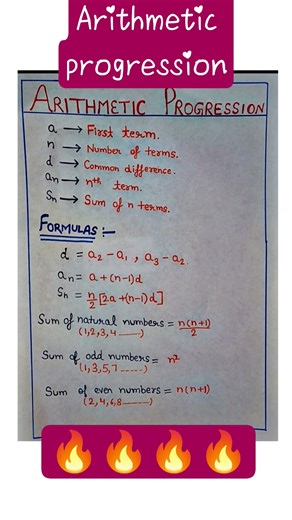 Arithmetic
progression
ARITHMETIC PROGRESSION
a → First term.
n → Number of terms.
d → Common difference.
an → nth term.
Sn → Sum of n terms.
FORMULAS :-
d = a₂ - a₁ , a₃ - a₂.
an = a + (n-1)d
Sn = n/2 [2a + (n-1)d]
Sum of natural numbers = n(n+1)/2
(1,2,3,4 ------)
Sum of odd numbers = n²
(1,3,5,7 ------)
Sum of even numbers = n(n+1)
(2,4,6,8 ------)
🔥🔥🔥🔥